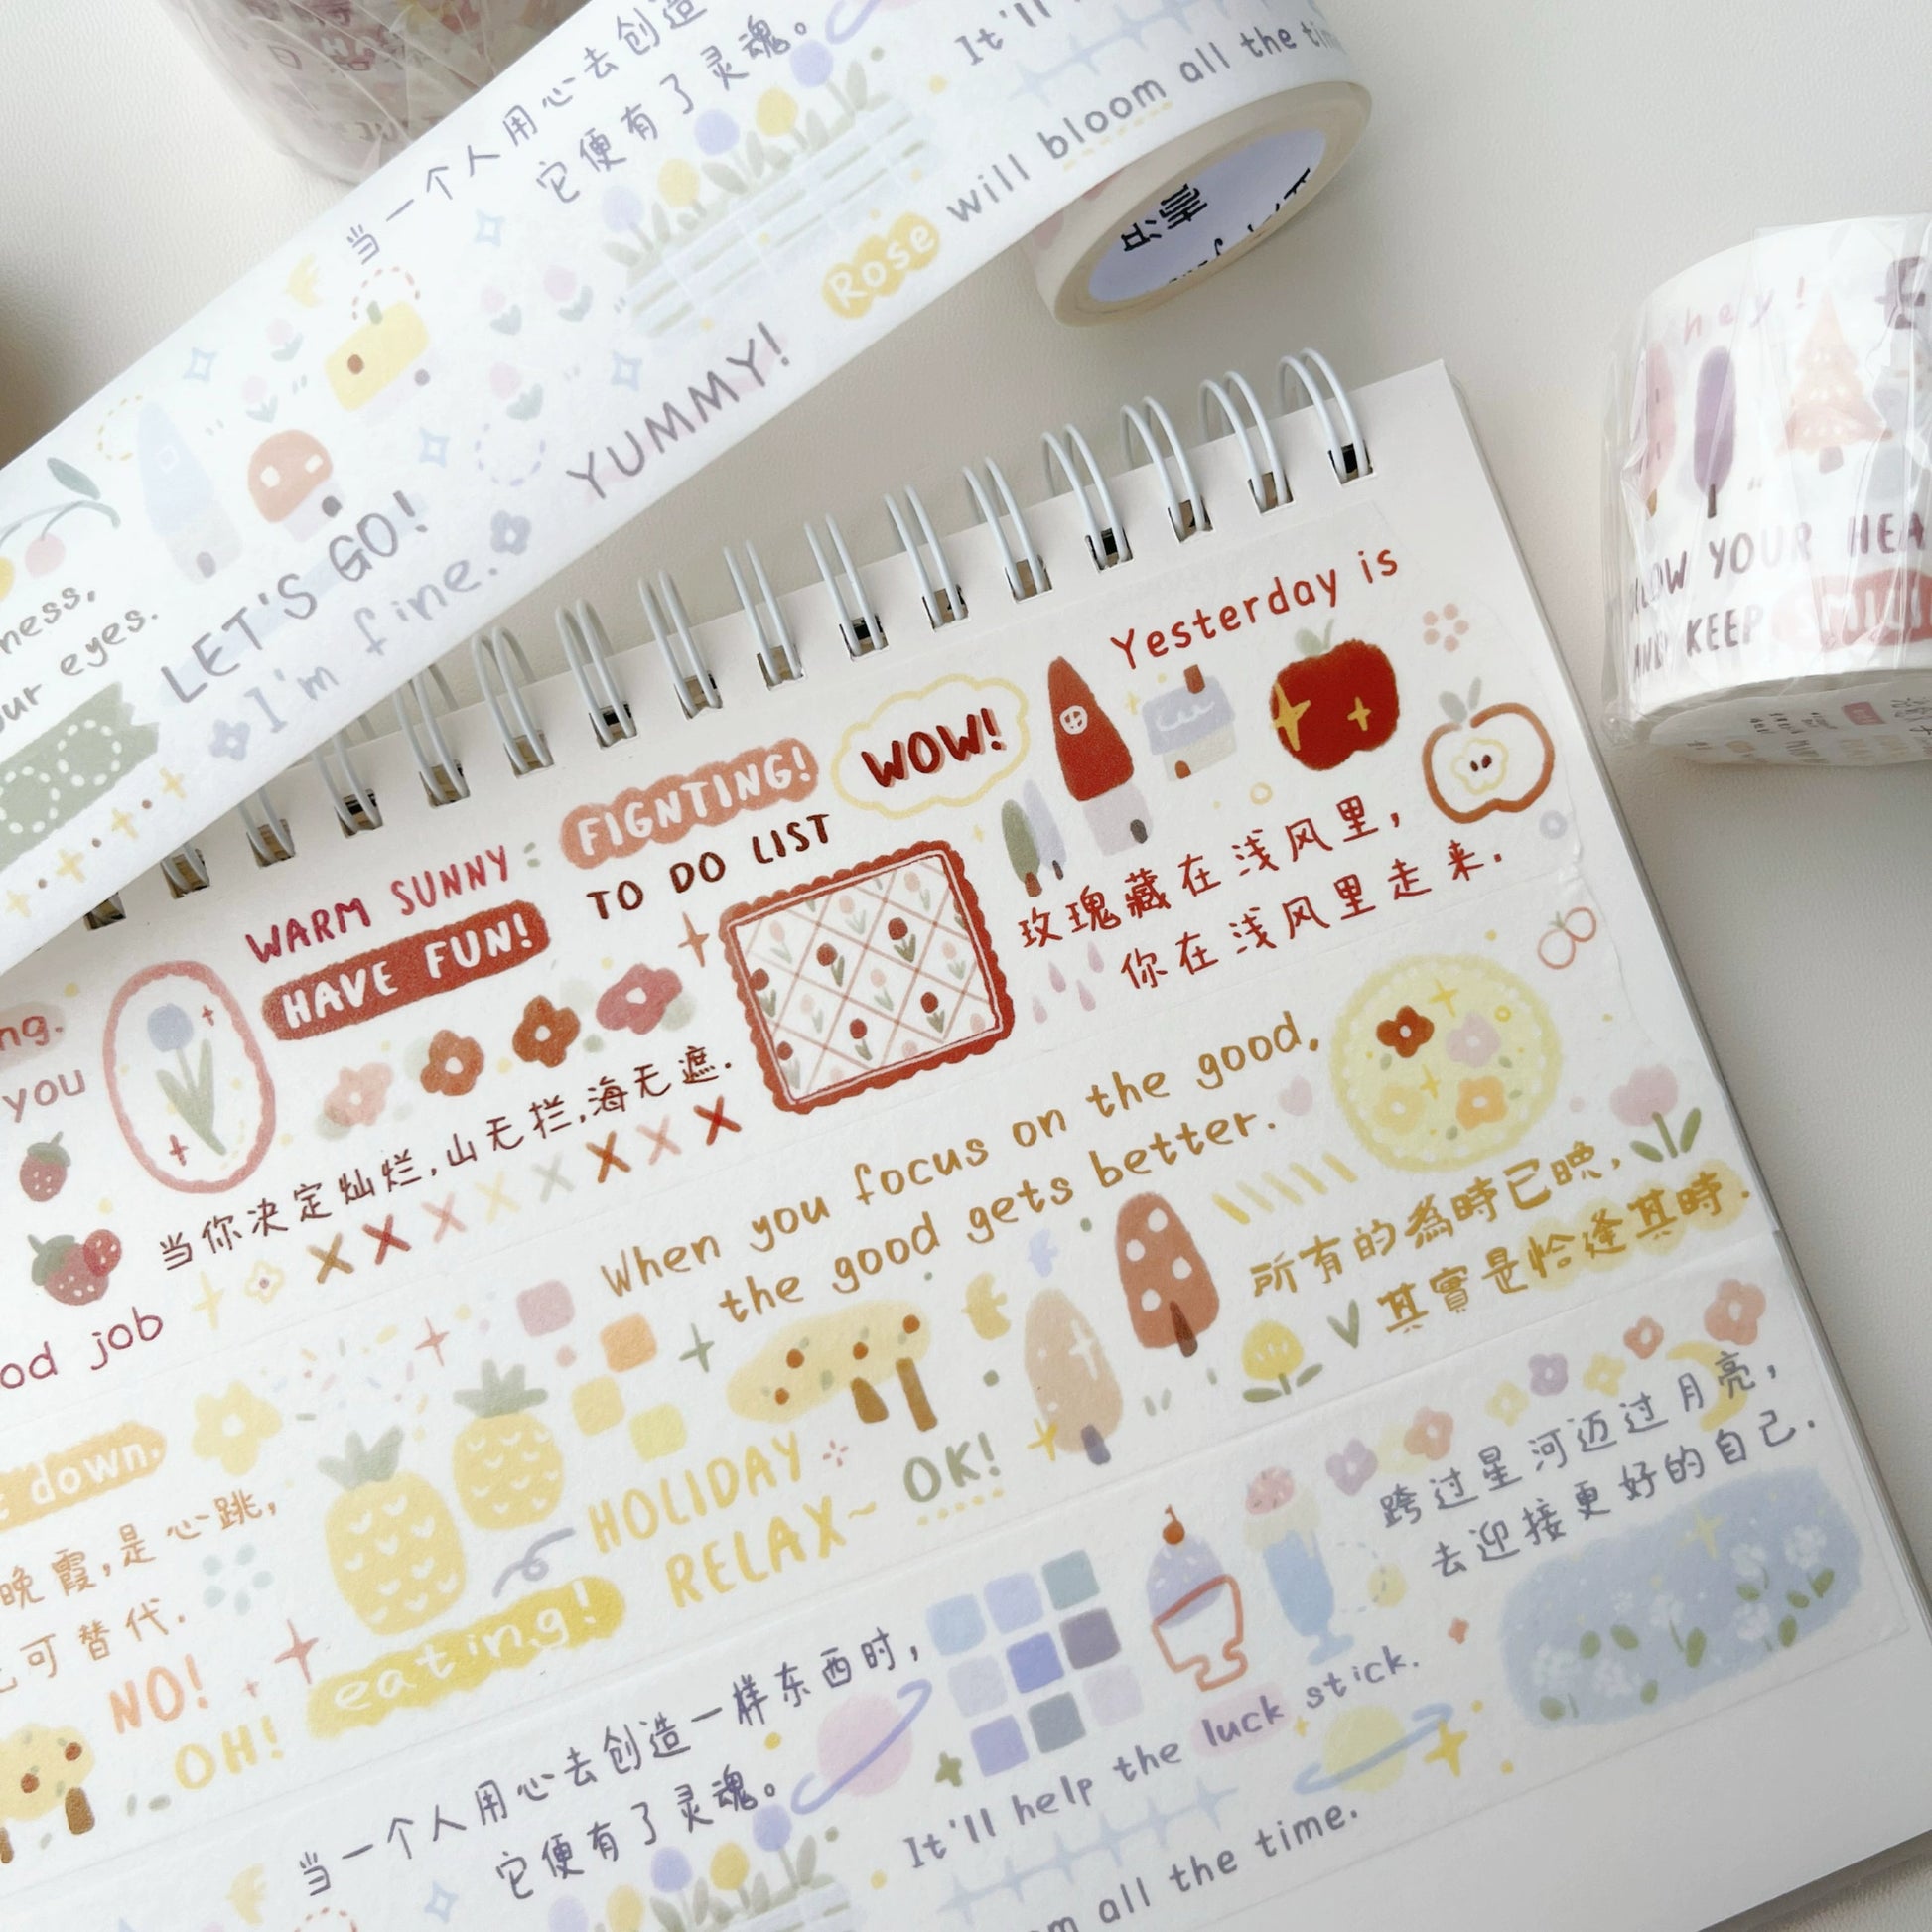 当一个人用心去创造
它便有了灵魂。
It'll
Rose will bloom all the
YUMMY!
LET'S GO!
I'm fine.
your eyes.
hey!
YOUR
AND KEEP
Yesterday is
WOW!
FIGNTING!
WARM SUNNY
TO DO LIST
HAVE FUN!
玫瑰藏在浅风里,
你在浅风里走来.
you
当你决定灿烂,山无拦,海无遮.
job
When you focus on the good,
the good gets better.
所有的為時已晚,
其實是恰逢其時.
down,
晚霞,是心跳,
可替代.
HOLIDAY
OK!
RELAX~
NO!
eating!
OH!
跨过星河迈过月亮,
去迎接更好的自己.
当一个人用心去创造一样东西时,
它便有了灵魂。
It'll help the luck stick.
all the time.